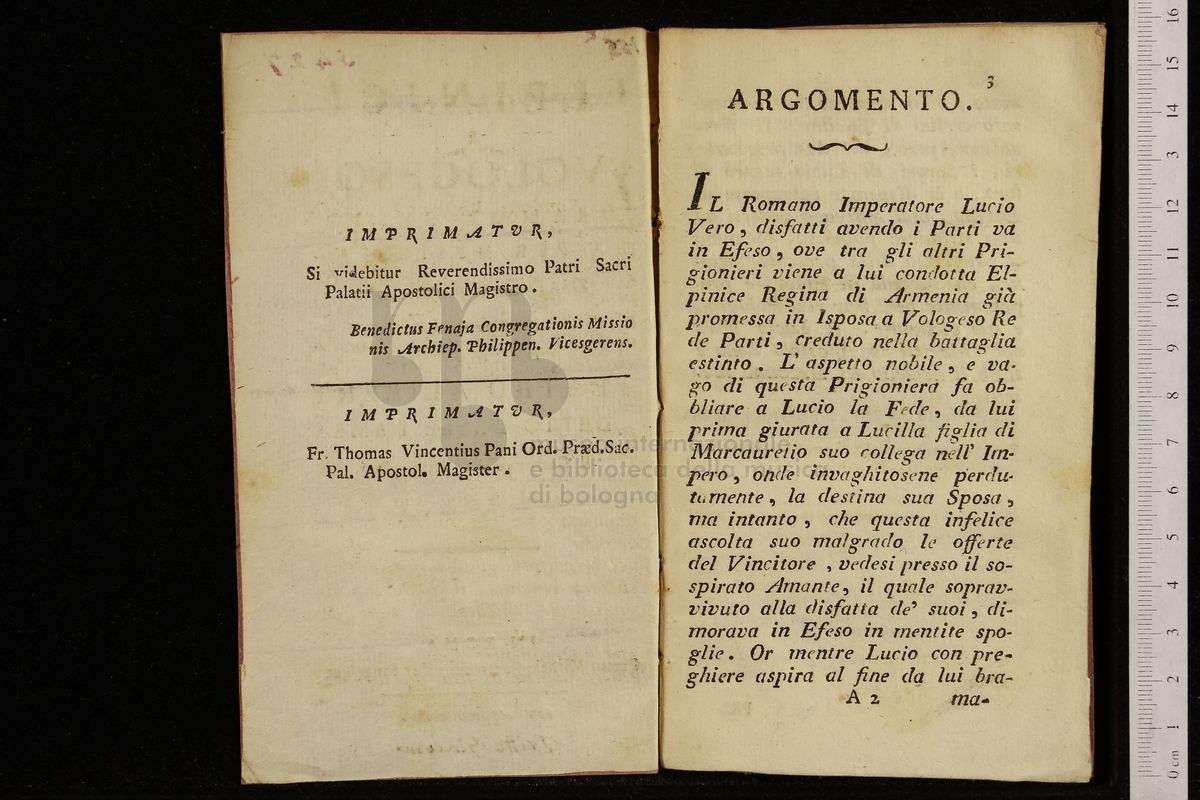 IMPRIMATVR,
Si videbitur Reverendissimo Patri Sacri
Palatii Apostolici Magistro.
Benedictus Fenaja Congregationis Missio
nis Archiep. Philippen. Vicesgerens.
IMPRIMATVR,
Fr. Thomas Vincentius Pani Ord. Præd. Sac.
Pal. Apostol. Magister.
museo internazionale
e biblioteca della musica
di bologna
3
ARGOMENTO.
IL Romano Imperatore Lucio
Vero, disfatti avendo i Parti va
in Efeso, ove tra gli altri Pri-
gionieri viene a lui condotta El-
pinice Regina di Armenia già
promessa in Isposa a Vologeso Re
de Parti, creduto nella battaglia
estinto. L' aspetto nobile, e va-
go di questa Prigioniera fa ob-
bliare a Lucio la Fede, da lui
prima giurata a Lucilla figlia di
Marcaurelio suo collega nell' Im-
pero, onde invaghitosene perdu-
tamente, la destina sua Sposa,
ma intanto, che questa infelice
ascolta suo malgrado le offerte
del Vincitore, vedesi presso il so-
spirato Amante, il quale soprav-
vivuto alla disfatta de' suoi, di-
morava in Efeso in mentite spo-
glie. Or mentre Lucio con pre-
ghiere aspira al fine da lui bra-
A 2 ma-
0 cm 1 2 3 4 5 6 7 8 9 10 11 12 13 14 15 16